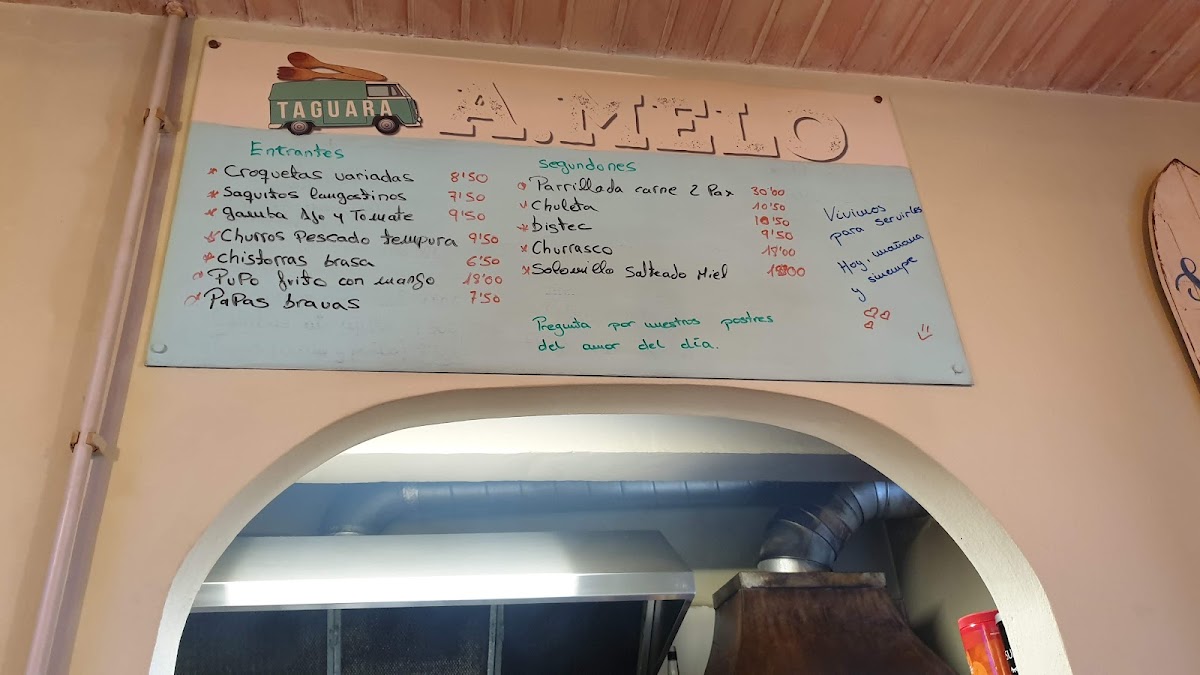 TAGUARA
A.MELO
Entrantes
Croquetas variadas 8'50
Saquitos langostinos 7'50
gamba Ajo y Tomate 9'50
Churros Pescado tempura 9'50
chistorras brasa 6'50
PuPo frito con mango 18'00
PaPas bravas 7'50
segundones
Parrillada carne 2 Pax 30'00
Chuleta 10'50
bistec 10'50
9'50
Churrasco 17'00
Solomillo Salteado Miel 18'00
Pregunta por nuestros postres
del amor del día.
Vivimos
para servirles
Hoy, mañana
y siempre